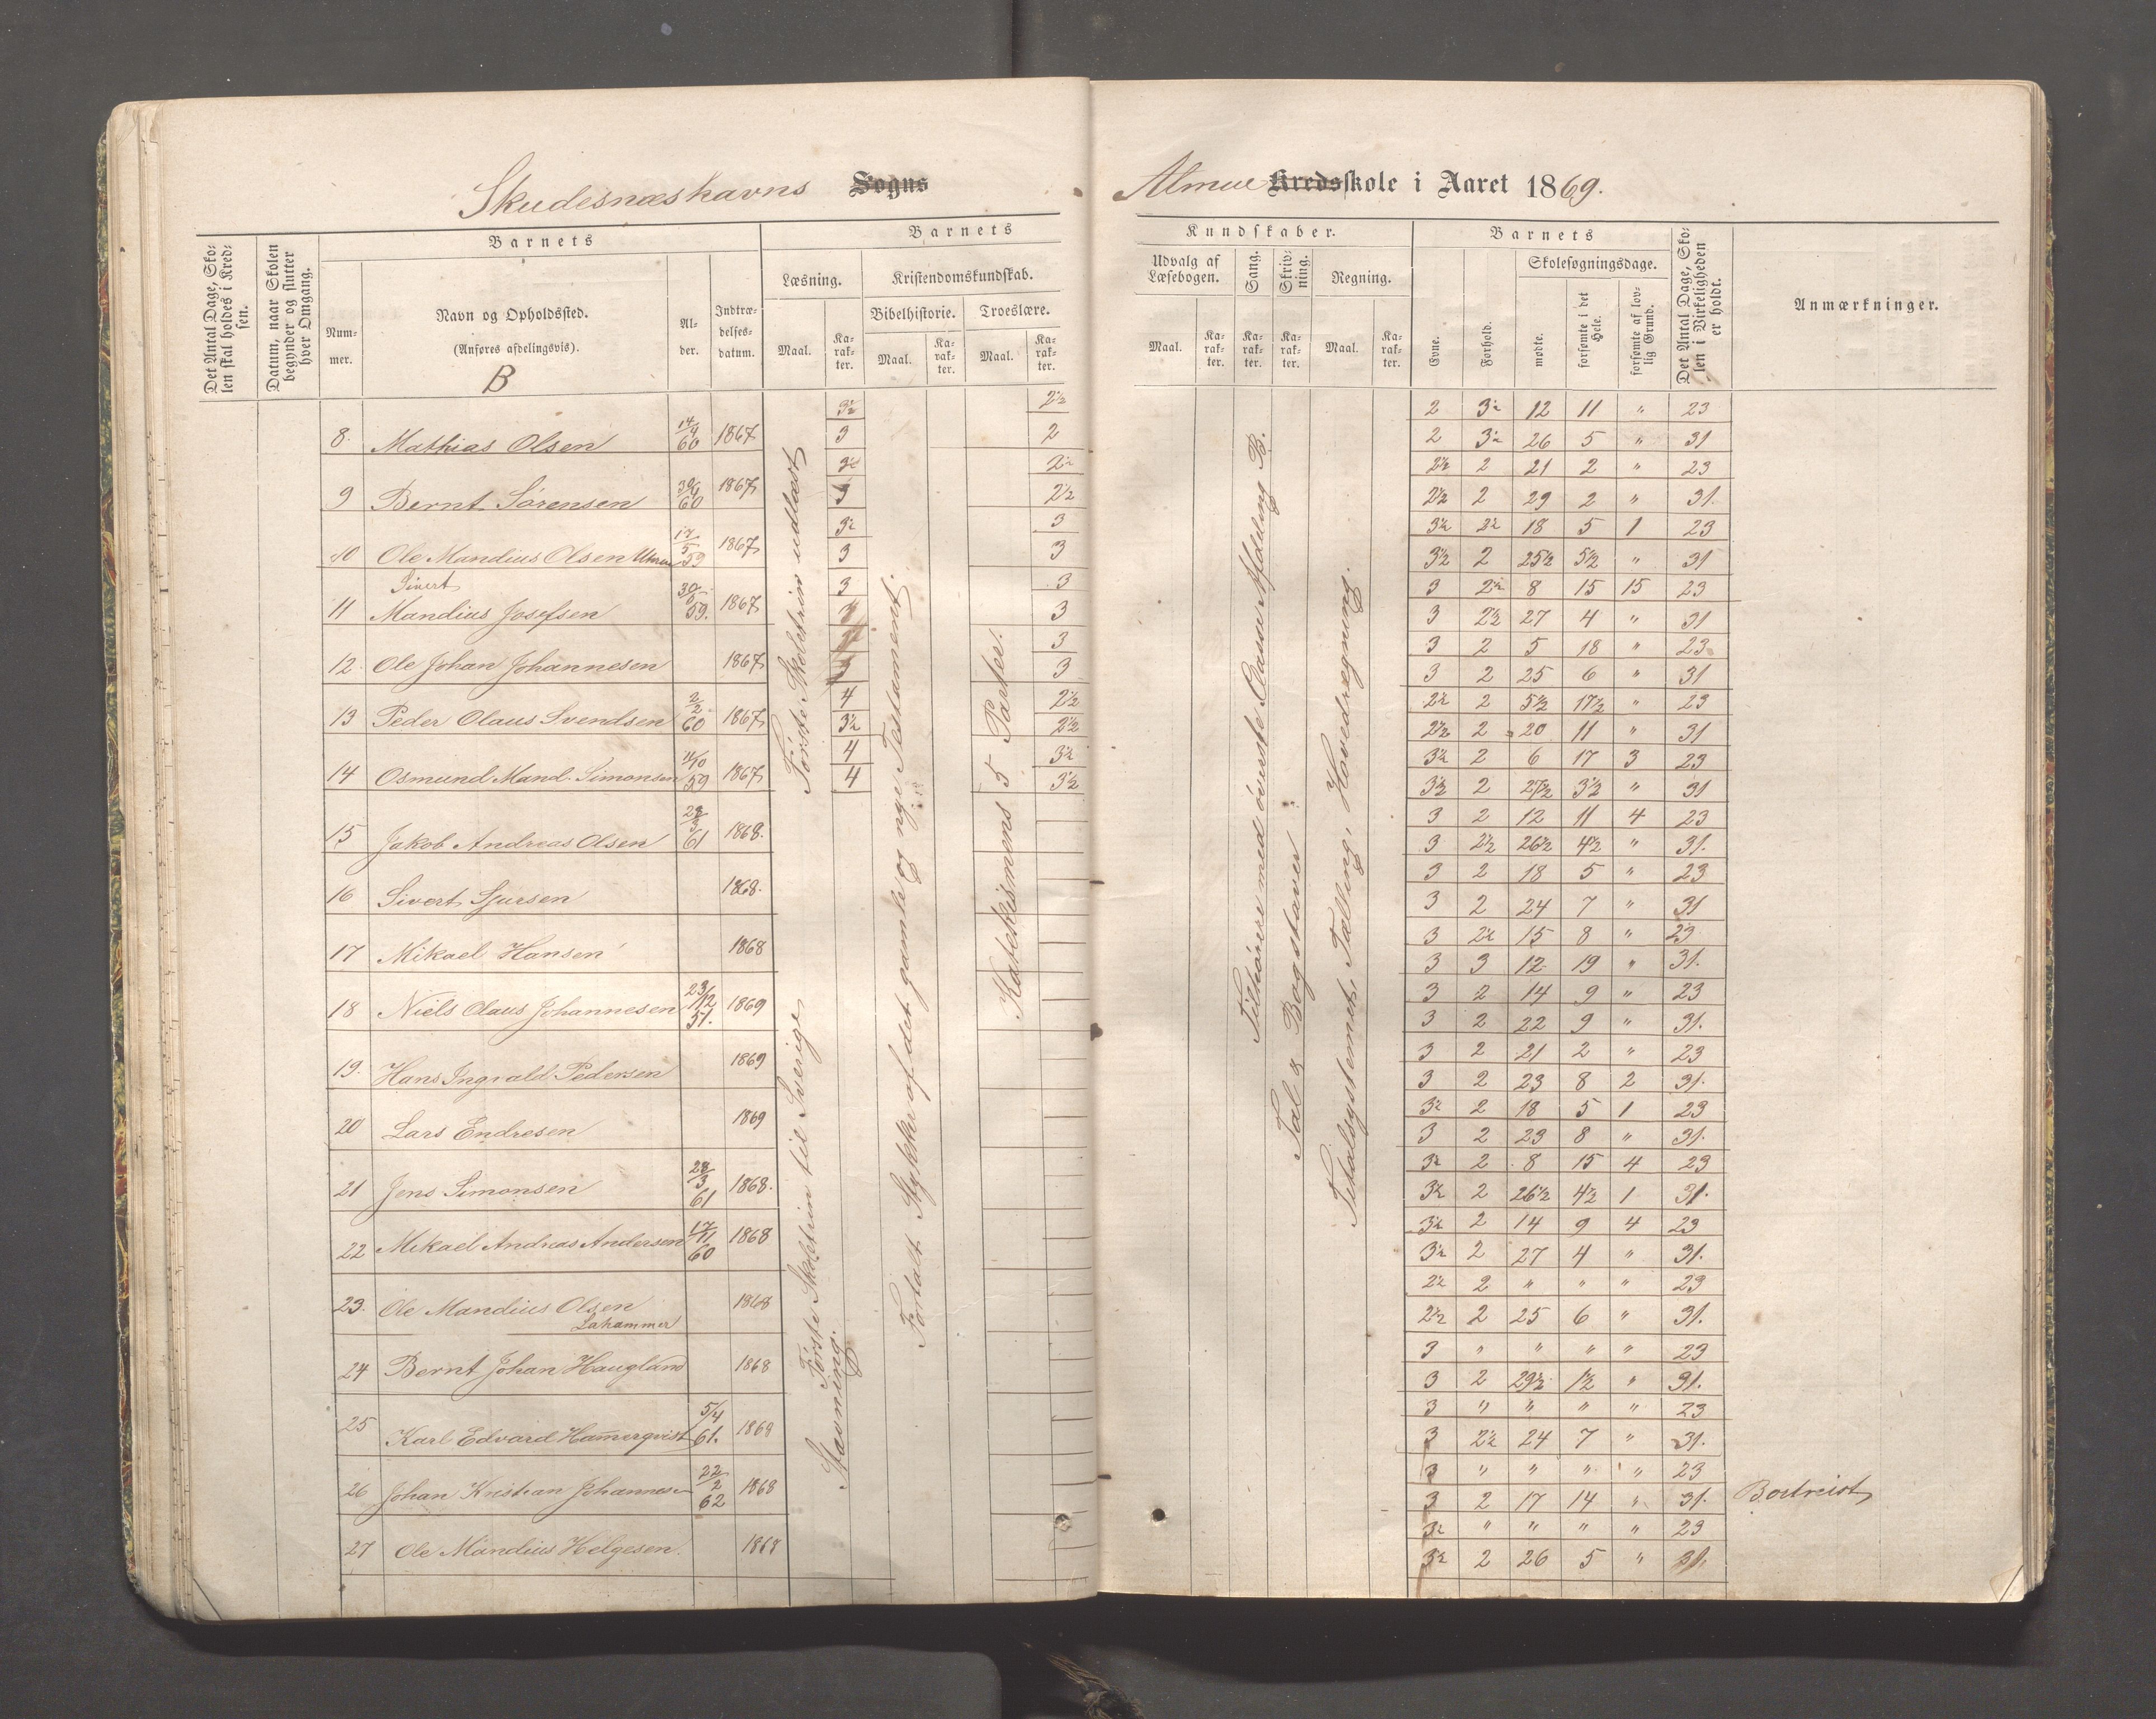 Skudesnæshavns Sogns
Almue Kredsskole i Aaret 1869.
Det Antal Dage, Skolen skal holdes i Kredsen.
Datum, naar Skolen begynder og slutter hver Omgang.
Barnets
Num-
mer.
Navn og Opholdssted.
(Anføres afdelingsvis).
B
Al-
der.
Indtræ-
delses-
datum.
Barnets
Læsning.
Maal.
Ka-
rak-
ter.
Kristendomskundskab.
Bibelhistorie.
Maal.
Ka-
rak-
ter.
Troeslære.
Maal.
Ka-
rak-
ter.
Kundskaber.
Udvalg af
Læsebogen.
Maal.
Ka-
rak-
ter.
Sang.
Ka-
rak-
ter.
Skriv-
ning.
Ka-
rak-
ter.
Regning.
Maal.
Ka-
rak-
ter.
Barnets
Evne.
Forhold.
Skolesøgningsdage.
mødte.
forsømte i det
Hele.
forsømte af lov-
lig Grund.
Det Antal Dage, Sko-
len i Virkeligheden
er holdt.
Anmærkninger.
8. Mathias Olsen 14/4 60 1867
9 Bernt Sørensen 30/4 60 1867
10 Ole Mandius Olsen 17/5 59 1867
Sivert
11 Mandius Josefsen 30/5 59. 1867
12. Ole Johan Johannesen 1867
13 Peder Olaus Svendsen 2/2 60 1867
14 Osmund Mand. Simonsen 4/10 59 1867
15 Jakob Andreas Olsen 61 1868.
16 Sivert Sjursen 1868.
17 Mikael Hansen 1868
18 Niels Olaus Johannesen 23/12 57. 1869
19. Hans Ingvald Pedersen 1869
20 Lars Endresen 1869
21 Jens Simonsen 28/3 61 1868.
22 Mikael Andreas Andersen 60 1868
23. Ole Mandius Olsen 1868
Lahammer
24 Bernt Johan Haugland 1868
25 Karl Edvard Hamerqvist 5/4 61. 1868
26 Johan Kristian Johannesen 22/2 62 1868
27 Ole Mandius Helgesen. 1868
Første Skoletrin udlæst
Første Skoletrin til Sverige
Stavning.
Fortalt Stykke af det gamle og nye Testament.
Katekismens 5 Parter.
Tilhører med øverste Classe Afdeling B.
Tal & Bogstaver
Titalsystemet, Tælling, Hovedregning.
3½ 2½ 2 3½ 12 11 " 23
3 2 2 3½ 26 5 " 31
3½ 2½ 2½ 2 21 2 " 23
3 2½ 2½ 2 29 2 " 31.
3½ 3 3½ 2½ 18 5 1 23
3 3 3½ 2 25½ 5½ " 31
3 3 3 2½ 8 15 15 23
3 3 2½ 27 4 " 31
3 3 2 5 18 " 23
3 3 3 2 25 6 " 31
4 2½ 2½ 2 5½ 17½ " 23
3½ 2½ 2½ 2 20 11 " 31
4 3½ 3½ 2 6 17 3 23
4 3½ 3½ 2 27½ 3½ " 31
3 2 12 11 4 23
3 2½ 26½ 4½ " 31.
3 2 18 5 " 23
3 2 24 7 " 31
3 2½ 15 8 " 23
3 3 12 19 " 31.
3 2 14 9 " 23
3 2 22 9 " 31.
3 2 21 2 " 23
3 2 23 8 2 31.
3½ 2 18 5 1 23
3 2 23 8 " 31.
3½ 2 8 15 4 23
3½ 2 26½ 4½ 1 31.
3½ 2 14 9 4 23
3½ 2 27 4 " 31.
2½ 2 " " " 23
2½ 2 25 6 " 31.
3 " " " " 23
3 2 29½ 1½ " 31.
3 " " " " 23
3 2½ 24 7 " 31.
3 " " " " 23
3 2 17 14 " 31. Bortreist
3½ " " " " 23
3½ 2 26 5 " 31.